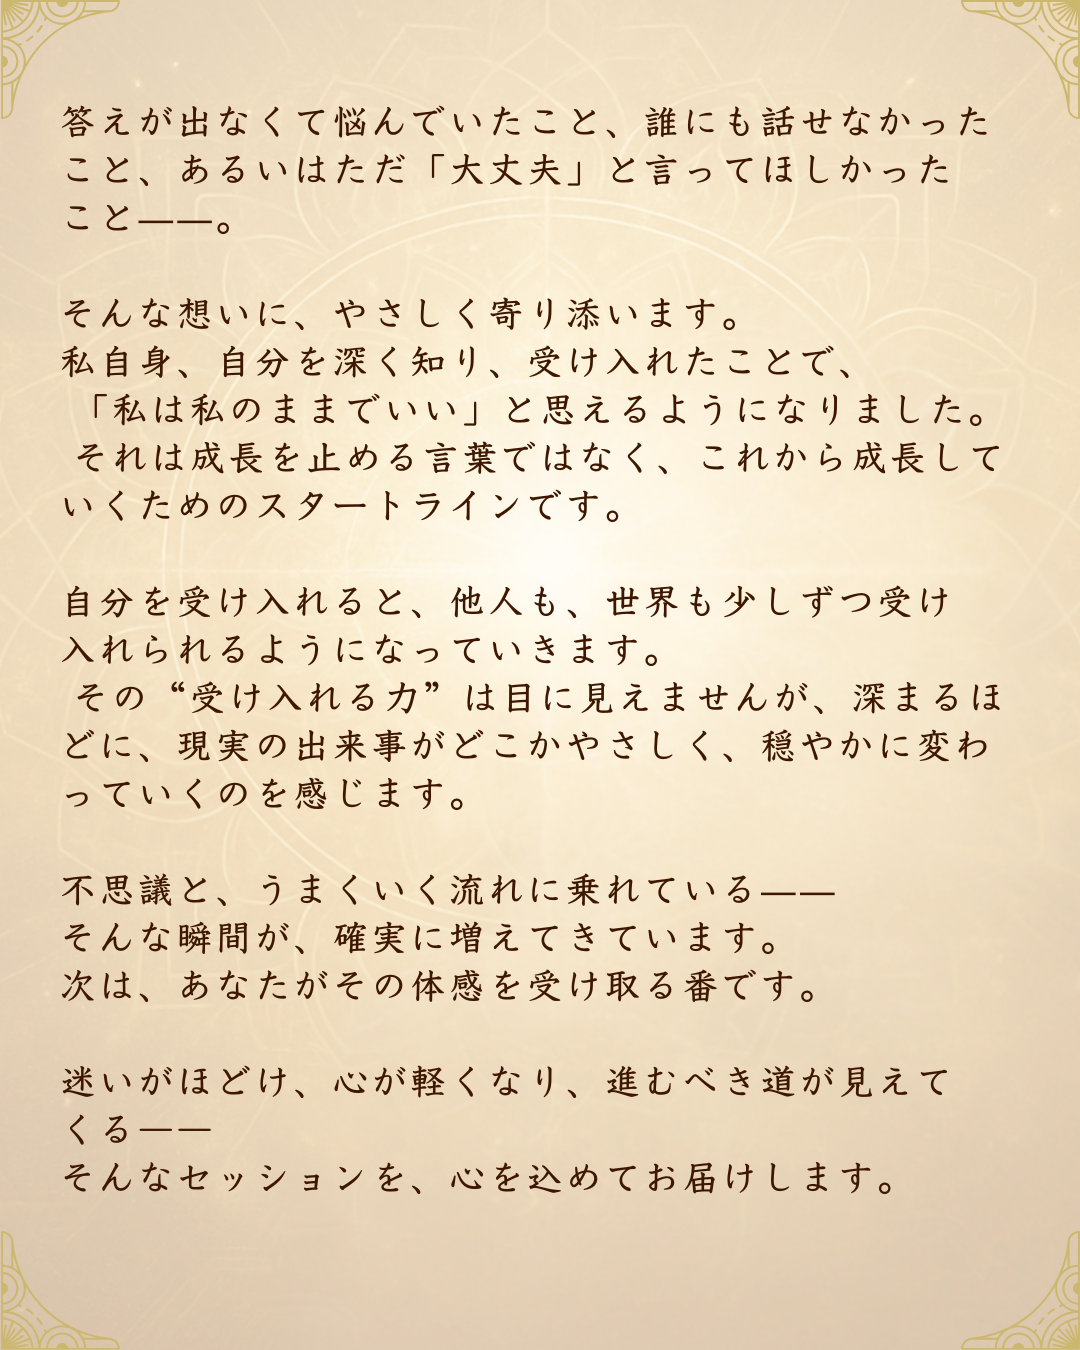 答えが出なくて悩んでいたこと、誰にも話せなかった
こと、あるいはただ「大丈夫」と言ってほしかった
こと——。
そんな想いに、やさしく寄り添います。
私自身、自分を深く知り、受け入れたことで、
「私は私のままでいい」と思えるようになりました。
それは成長を止める言葉ではなく、これから成長して
いくためのスタートラインです。
自分を受け入れると、他人も、世界も少しずつ受け
入れられるようになっていきます。
その“受け入れる力”は目に見えませんが、深まるほ
どに、現実の出来事がどこかやさしく、穏やかに変わ
っていくのを感じます。
不思議と、うまくいく流れに乗れている——
そんな瞬間が、確実に増えてきています。
次は、あなたがその体感を受け取る番です。
迷いがほどけ、心が軽くなり、進むべき道が見えて
くる——
そんなセッションを、心を込めてお届けします。